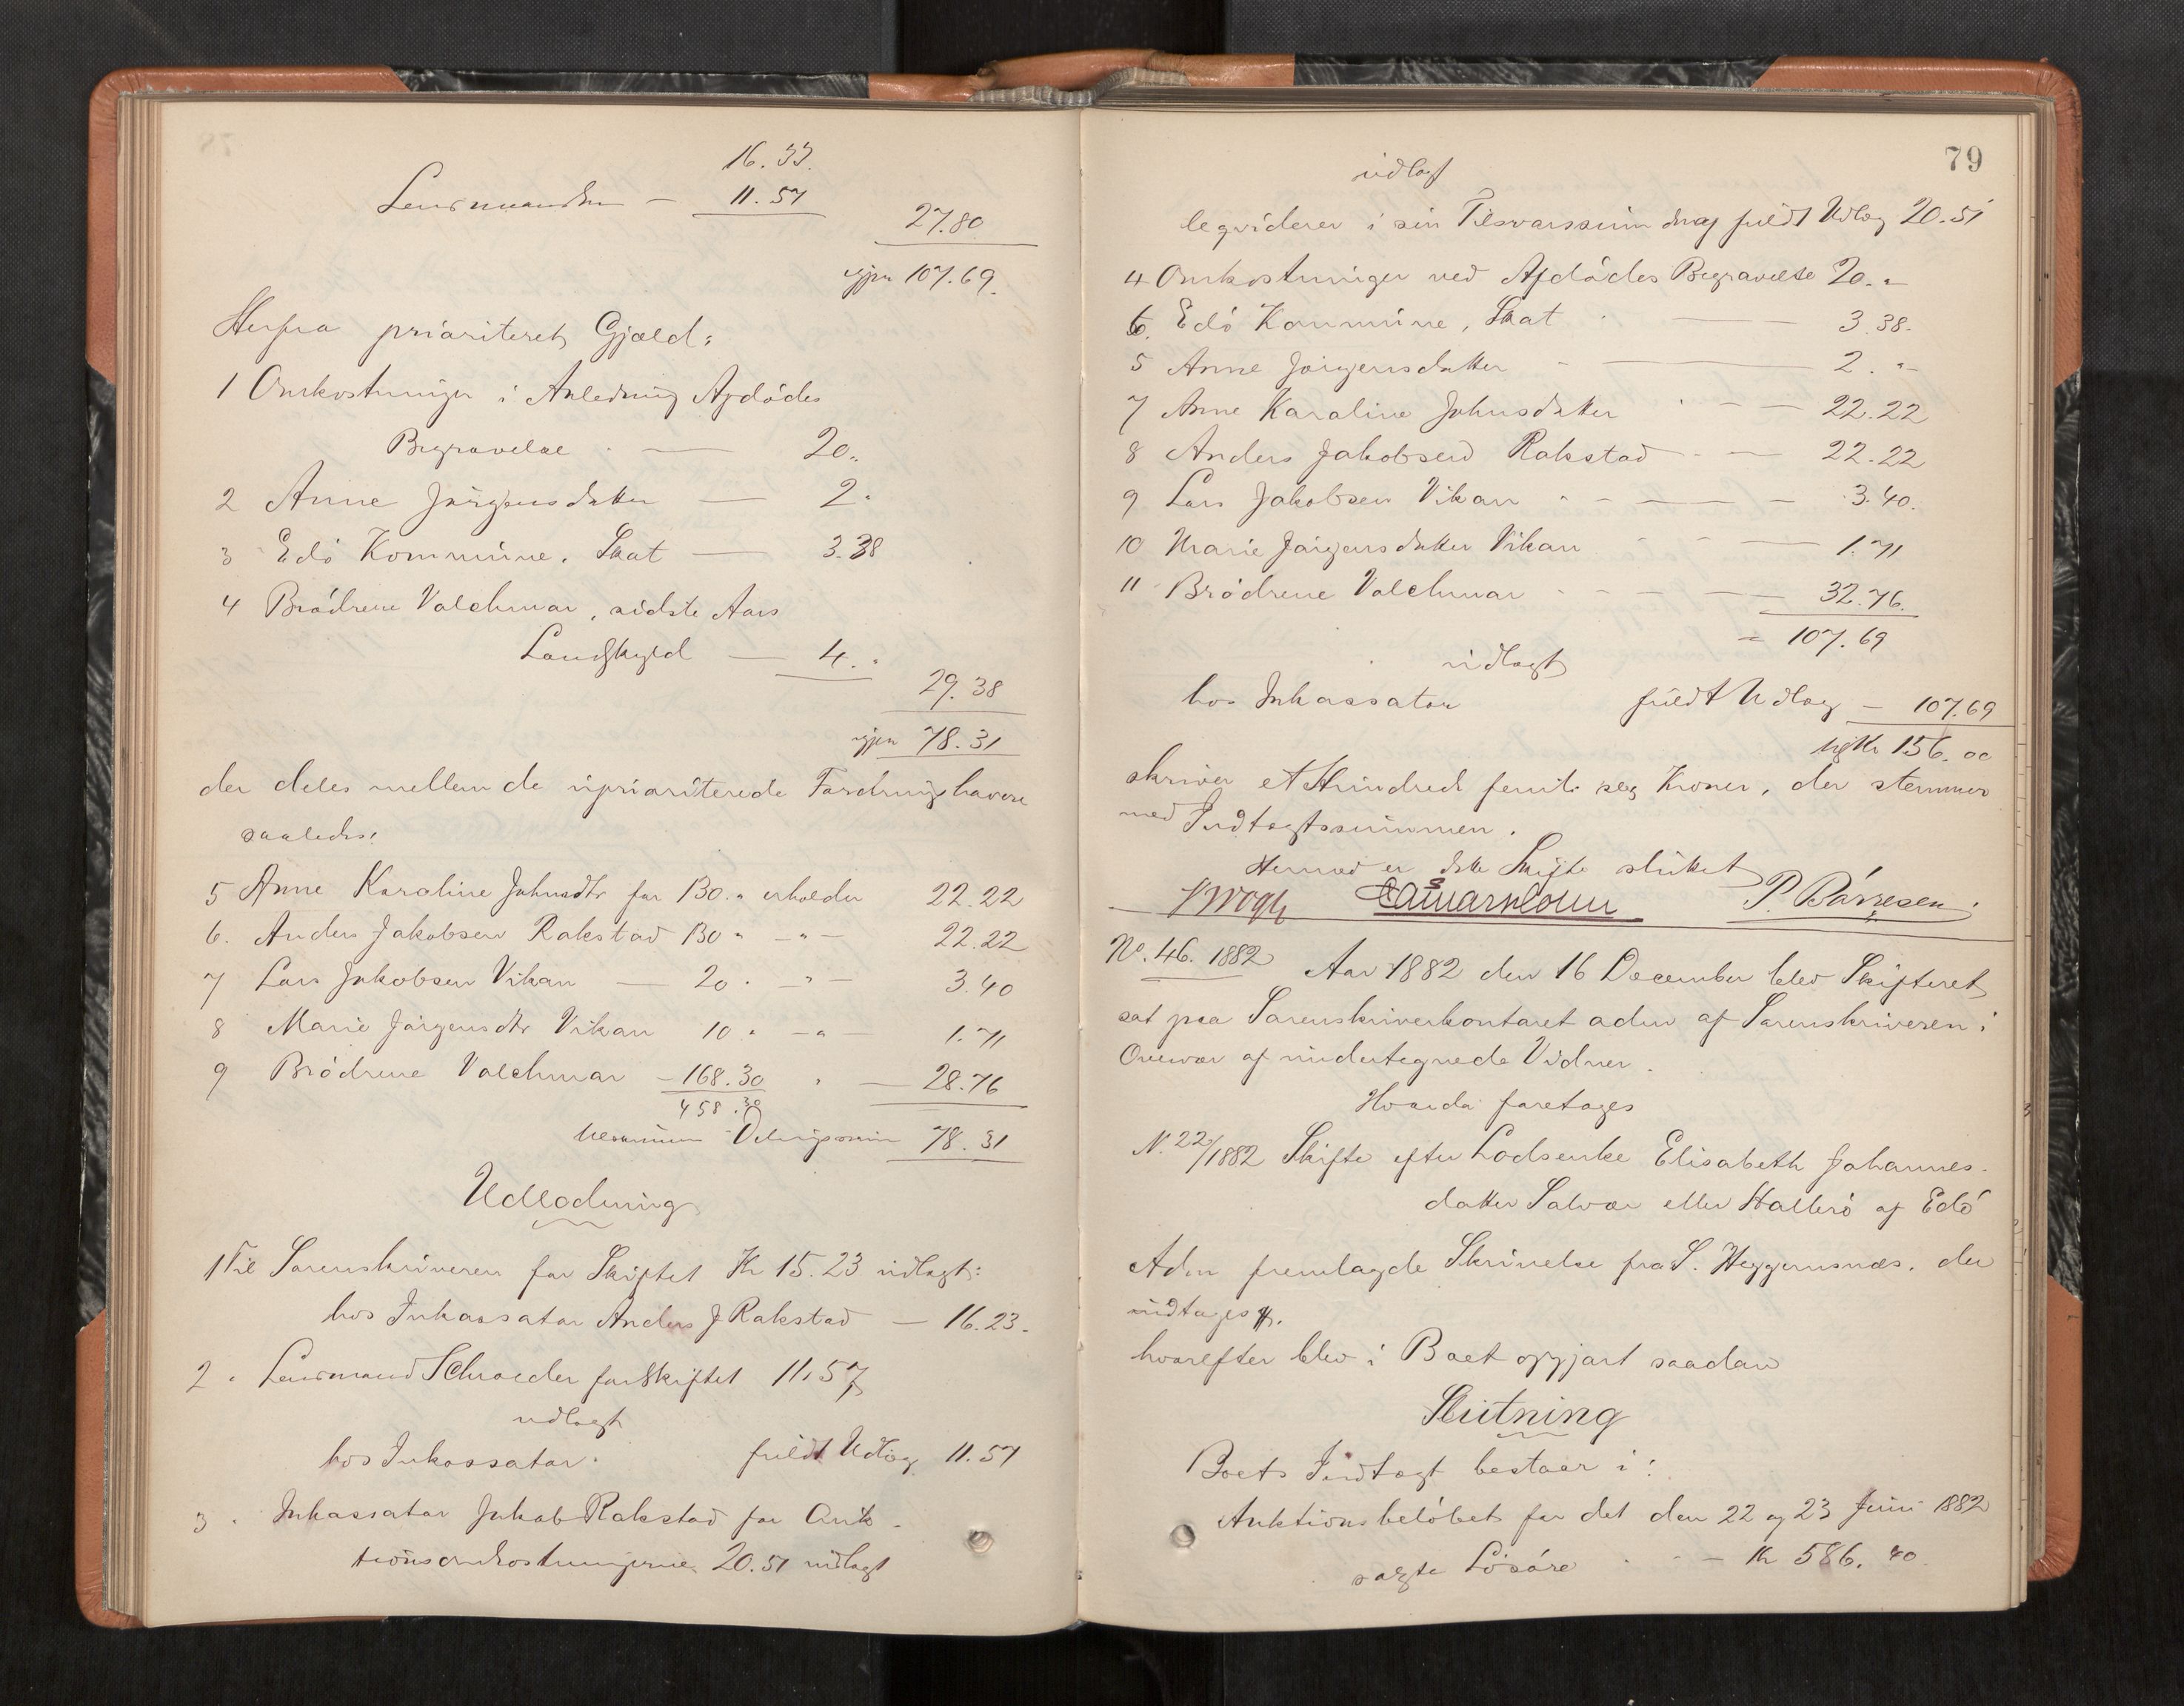 16.33.
Lensmanden — 11.57
27.80
igjen 107.69.
Herfra prioriteret Gjæld:
1 Omkostninger i Anledning Afdödes
Begravelse — 20„
2 Anne Jörgensdatter — 2„
3 Edö Kommune, Skat — 3.38
4 Brödrene Volckmar, sidste Aars
Landskyld — 4.„
29.38
igjen 78.31
der deles mellem de uprioriterede Fordringshavere
saaledes:
5 Anne Karoline Johnsdtr for 130.„ erholder 22.22
6. Anders Jakobsen Rakstad 130 „ —„— 22.22
7 Lars Jakobsen Vikan — 20 . —„— 3.40
8 Marie Jörgensdtr Vikan 10 „ —„— 1.71
9 Brödrene Volckmar — 168.30 „ — 28.76
458.30
Delingssum 78.31
Udlodning
1 Til Sorenskriveren for Skiftet Kr 15.23 udlagt:
hos Inkassator Anders J Rakstad — 16.23.
2. Lensmand Schrøder for Skiftet 11,57
udlagt
hos Inkassator. fuldt Udlæg 11.57
3. Inkassator Jakob Rakstad for Auk-
tionsomkostningerne 20.51 udlagt
79
udlagt
leqviderer i sin Tilsvarssum fuldt Udlæg 20.51
4 Omkostninger ved Afdödes Begravelse 20.„
6. Edö Kommune, Skat — 3.38.
5 Anne Jörgensdatter — 2.„
7 Anne Karoline Johnsdatter — 22.22
8 Anders Jakobsen Rakstad — 22.22
9 Lars Jakobsen Vikan — 3.40.
10 Marie Jörgensdatter Vikan — 1.71
11 Brödrene Volckmar — 32.76.
= 107.69
udlagt
hos Inkassator fuldt Udlæg — 107.69
Kr 156.00
skriver et Hundred femti seg Kroner, der stemmer
med Indtægtssummen.
Hermed er dette Skifte sluttet
P. Börresen
No. 46. 1882 Aar 1882 den 16 December blev Skifteret
sat paa Sorenskriverkontoret adm af Sorenskriveren i
Overvær af undertegnede Vidner.
Hvorda foretoges
N. 22/1882 Skifte efter Lodsenke Elisabeth Johannes-
datter Salvær eller Hallerö af Edö
Adm fremlagde Skrivelse fra S. Heggernsnæs, der
indtages #.
hvorefter blev i Boet opgjort saadan
Slutning
Boets Indtægt bestaar i:
Auktionsbelöbet for det den 22 og 23 Juni 1882
solgte Lösöre - - — Kr 586.40.